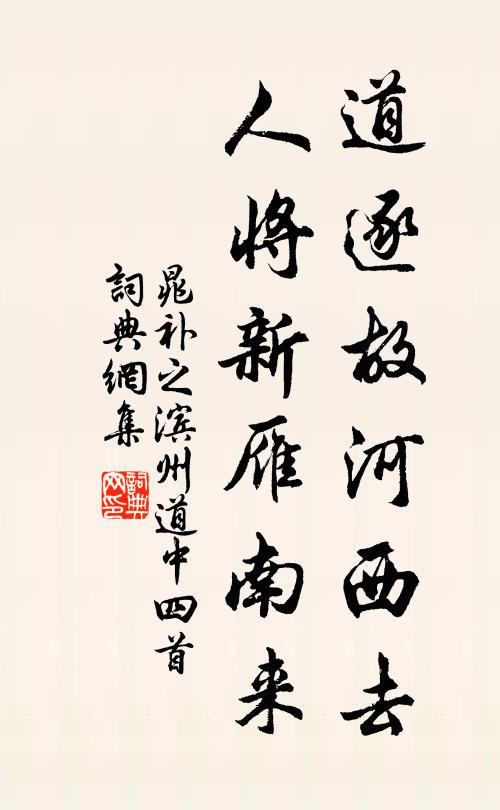 道逐故河西去
人将新雁南来
晁补之滨州道中四首
詞典網集
詞典
网印